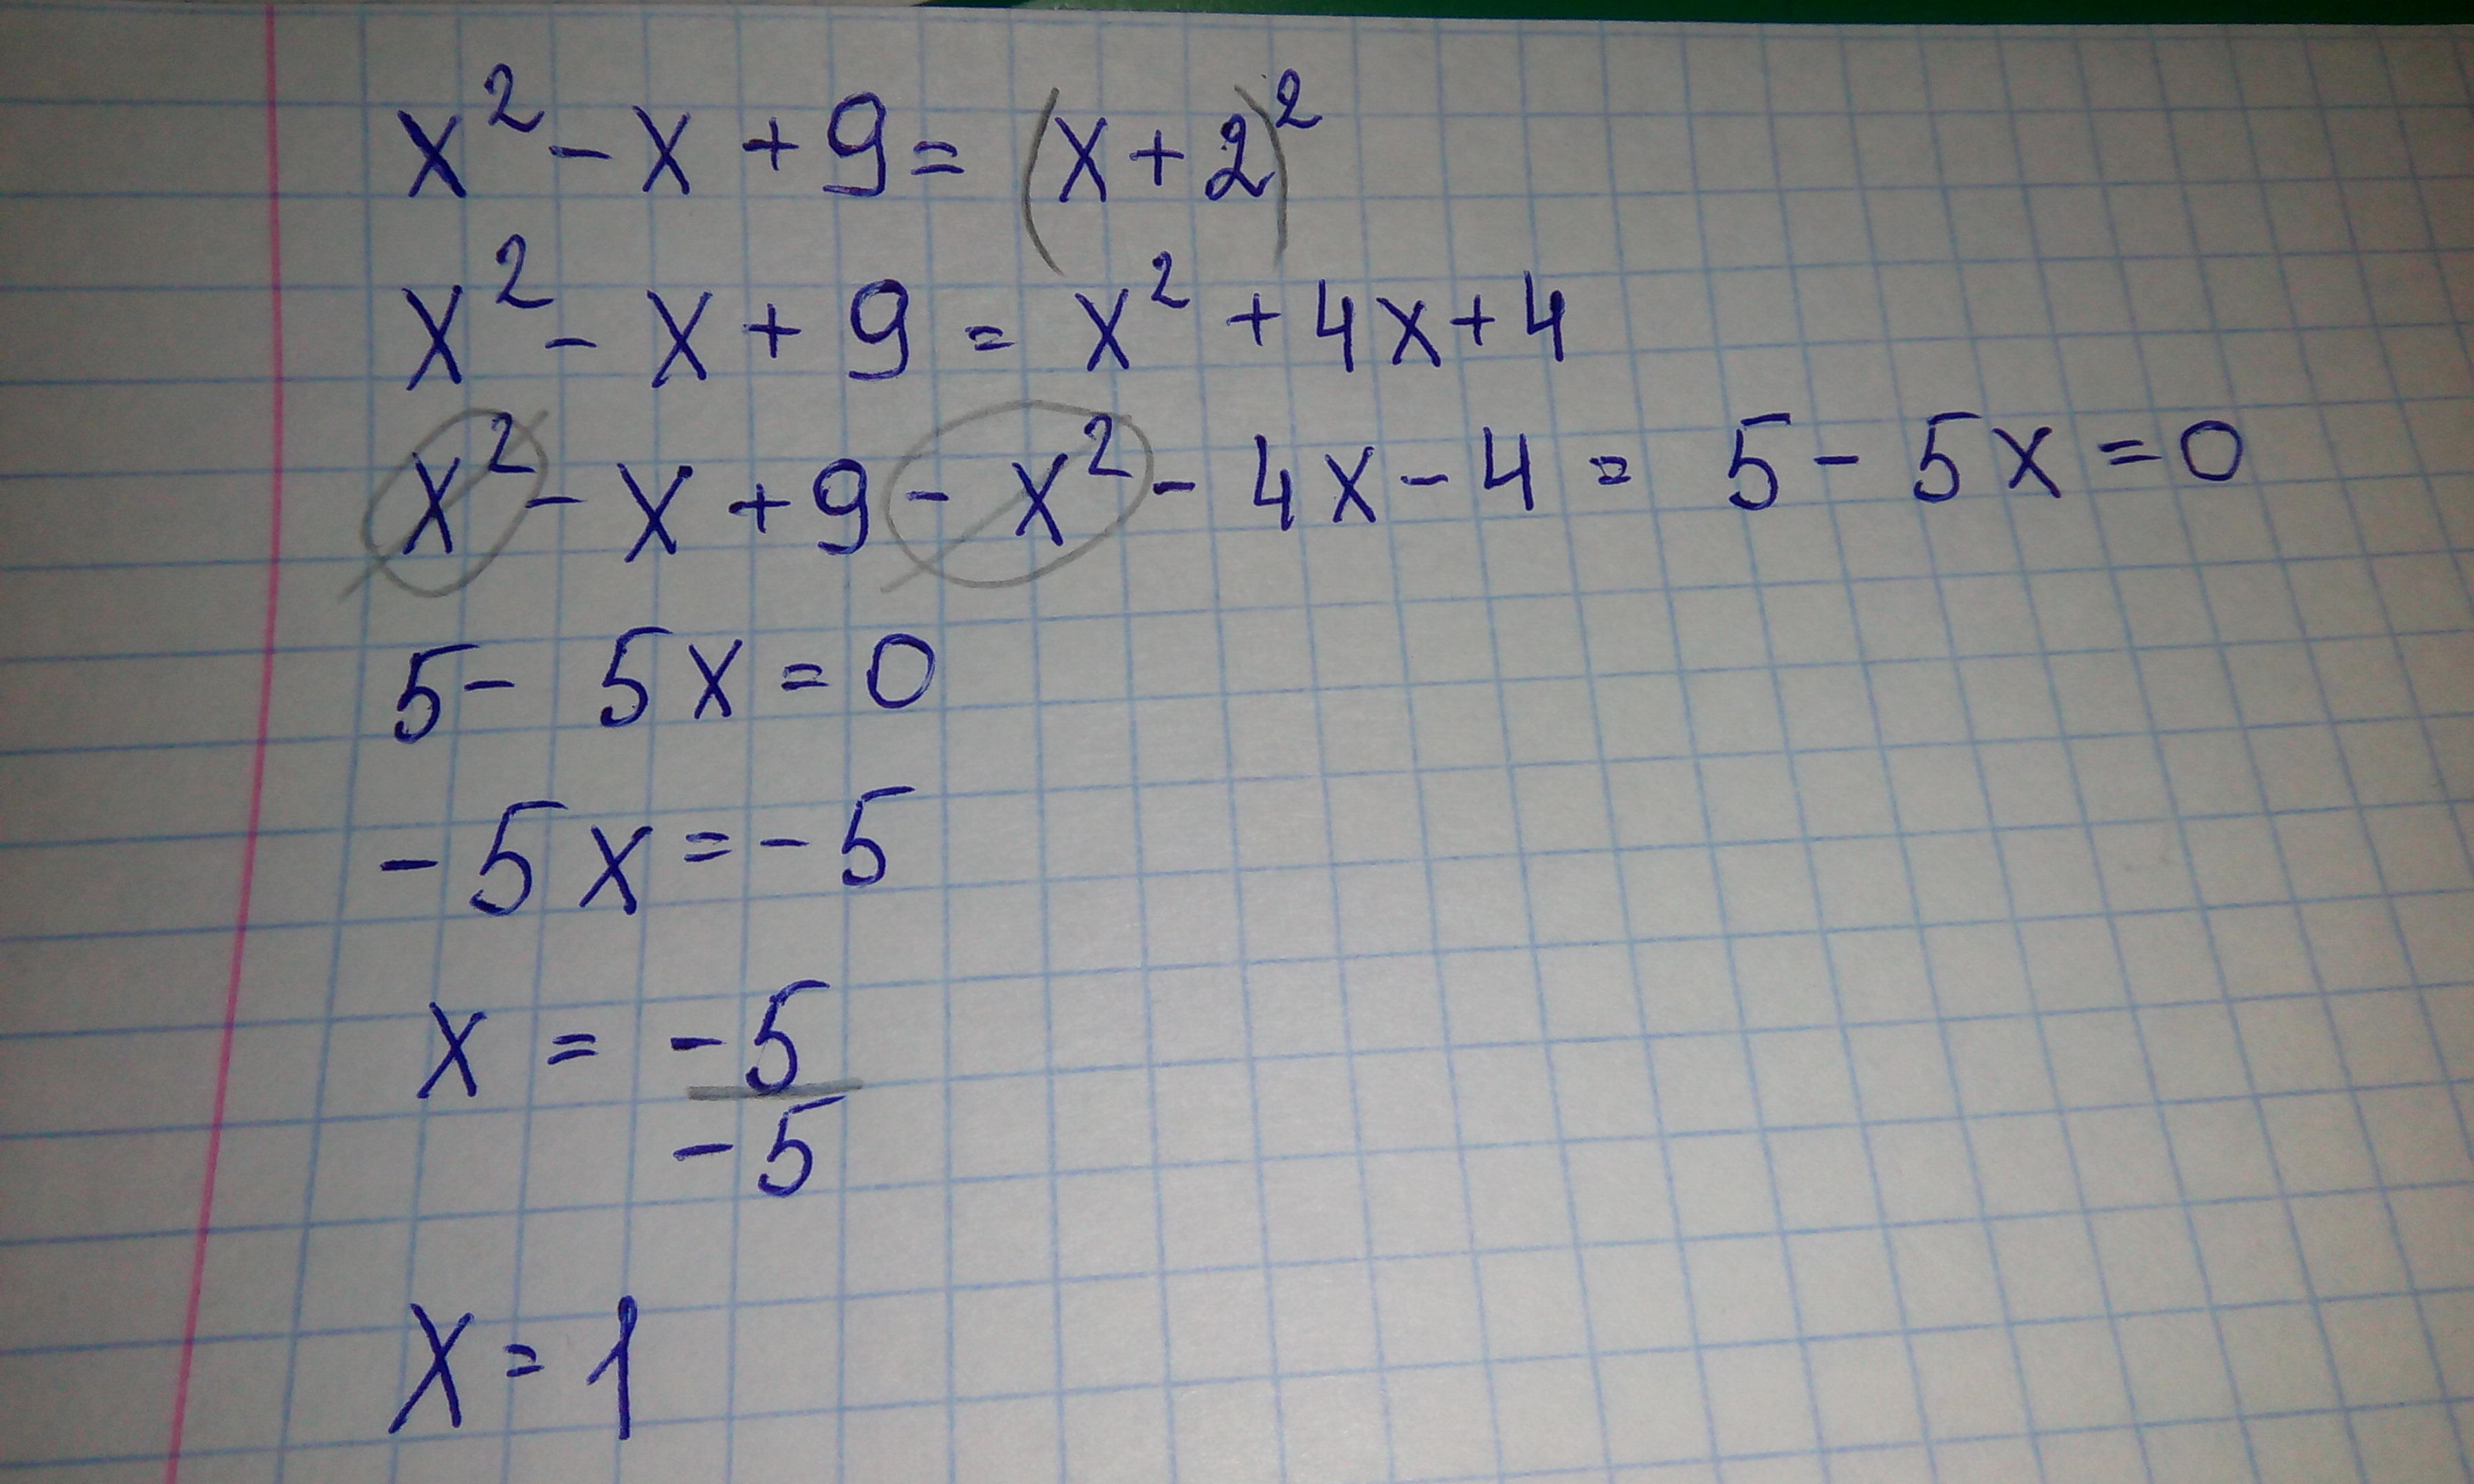 x² - x + 9 = (x + 2)²
x² - x + 9 = x² + 4x + 4
x² - x + 9 - x² - 4x - 4 = 5 - 5x = 0
5 - 5x = 0
-5x = -5
x = -5/-5
x = 1